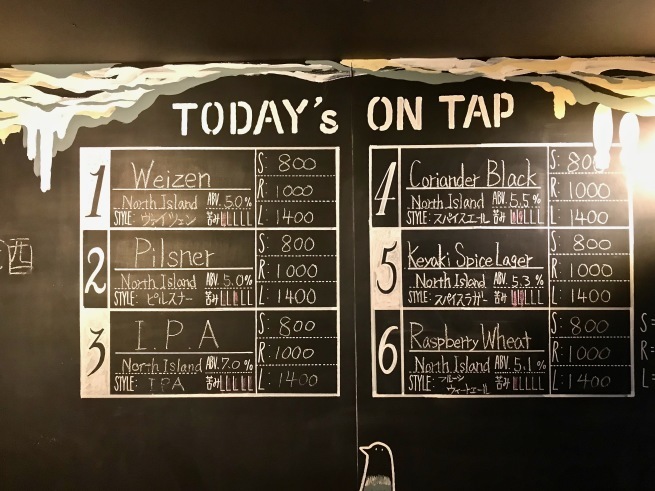 TODAY's ON TAP
1
Weizen
North Island ABV. 5.0%
STYLE: ヴァイツェン 苦み
S: 800
R: 1000
L: 1400
2
Pilsner
North Island ABV. 5.0%
STYLE: ピルスナー 苦み
S: 800
R: 1000
L: 1400
3
I.P.A
North Island ABV. 7.0%
STYLE: IPA 苦み
S: 800
R: 1000
L: 1400
4
Coriander Black
North Island ABV. 5.5%
STYLE: スパイスエール 苦み
S: 800
R: 1000
L: 1400
5
Keyaki Spice Lager
North Island ABV. 5.3%
STYLE: スパイスラガー 苦み
S: 800
R: 1000
L: 1400
6
Raspberry Wheat
North Island ABV. 5.1%
STYLE: フルーツ
ウィートエール 苦み
S: 800
R: 1000
L: 1400
酒
S=
R=
L: